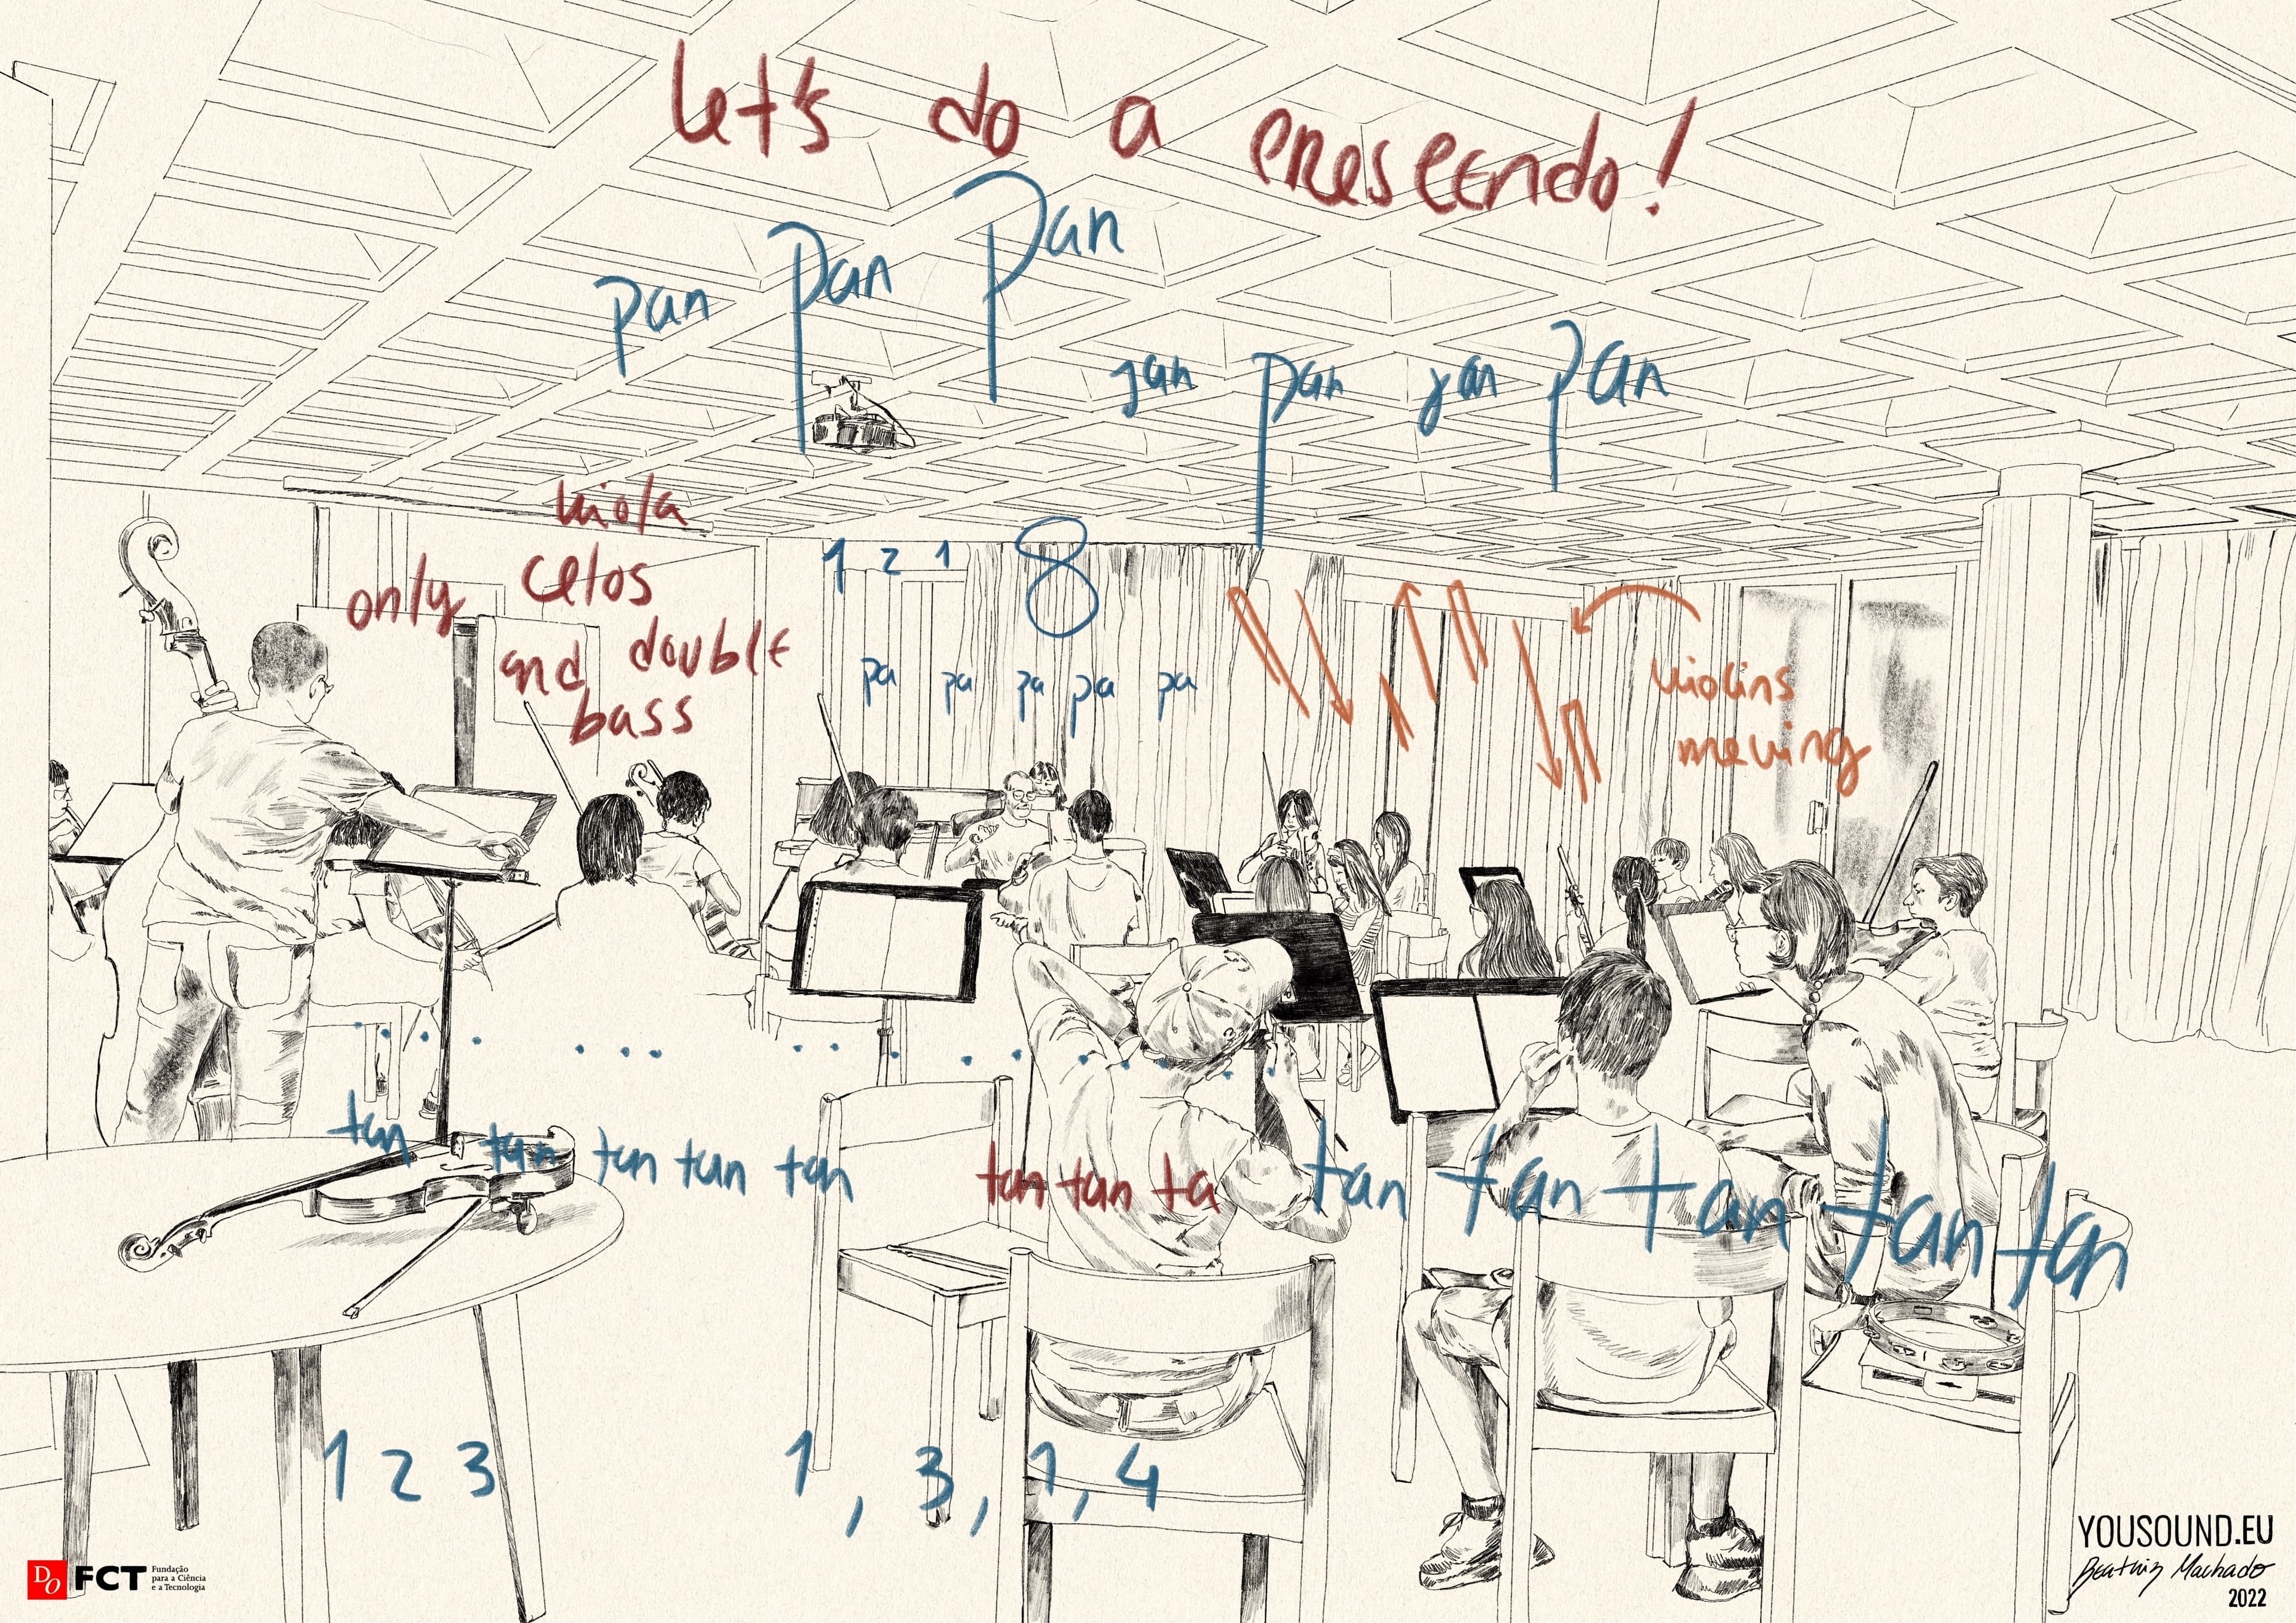 Let's do a crescendo!
pan pan pan
jan pan jan pan
only viola celos and double bass
1 2 1 8
pa pa pa pa pa
violins moving
tan tan tan tan tan tan tan ta tan tan tan tan tan
1 2 3 1, 3, 1, 4
DO FCT Fundação
para a Ciência
e a Tecnologia
YOUSOUND.EU
Beatriz Machado
2022